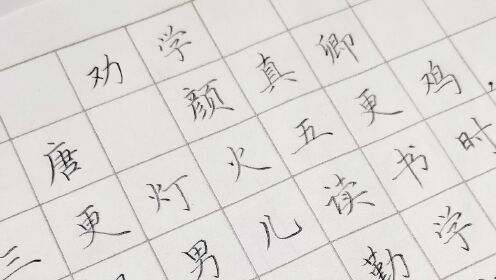 劝学
唐 颜真卿
三更灯火五更鸡，
男儿读书时
勤学